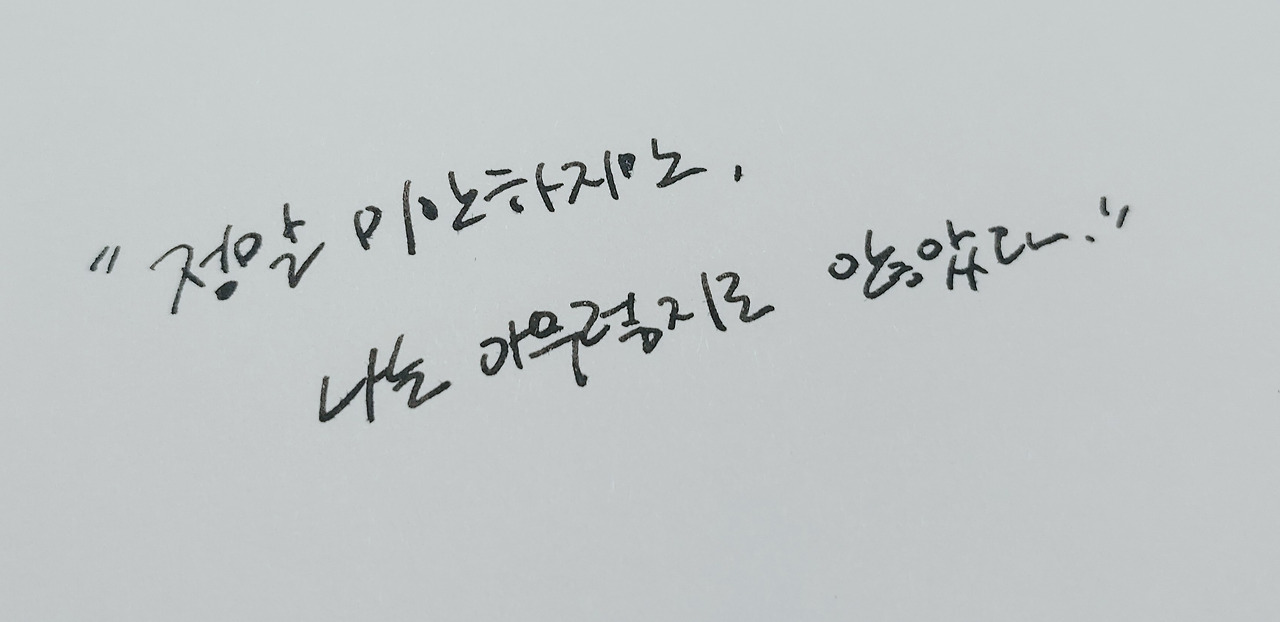 "정말 미안하지만,
나는 아무렇지도 않았다."